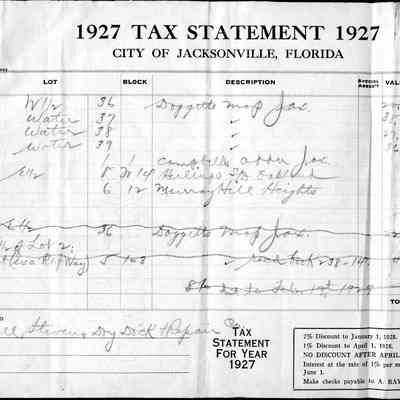 1927 TAX STATEMENT 1927
CITY OF JACKSONVILLE, FLORIDA
LOT BLOCK DESCRIPTION SPECIAL ASSESM'T VAL
W 1/2 36 Doggetts Map Jax.
Water 37 ✓
Water 38 ✓
Water 39 ✓
1 1 Campbells Addn Jax
E 1/2 8 14 S/D Oakland
6 12 Murray Hill Heights
E 1/2 36 Doggetts Map Jax.
of Lot 2
Way) 5 103 ✓
TO
Stevens Dry Dock & Repair Co
TAX
STATEMENT
FOR YEAR
1927
2% Discount to January 1, 1928.
1% Discount to April 1, 1928.
NO DISCOUNT AFTER APRIL
Interest at the rate of 1% per m
June 1.
Make checks payable to A. RAY